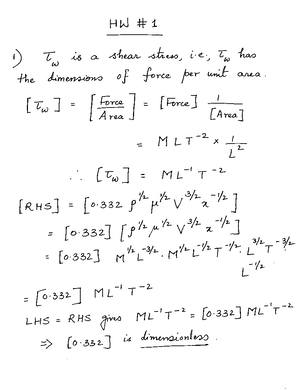 HW # 1
1) τ_w is a shear stress, i.e., τ_w has
the dimensions of force per unit area.
[τ_w] = [Force/Area] = [Force] 1/[Area]
= M L T^-2 × 1/L^2
∴ [τ_w] = M L^-1 T^-2
[RHS] = [0.332 ρ^1/2 μ^1/2 V^3/2 x^-1/2]
= [0.332] [ρ^1/2 μ^1/2 V^3/2 x^-1/2]
= [0.332] M^1/2 L^-3/2 · M^1/2 L^-1/2 T^-1/2 · L^3/2 T^-3/2
L^-1/2
= [0.332] M L^-1 T^-2
LHS = RHS gives M L^-1 T^-2 = [0.332] M L^-1 T^-2
⇒ [0.332] is dimensionless.